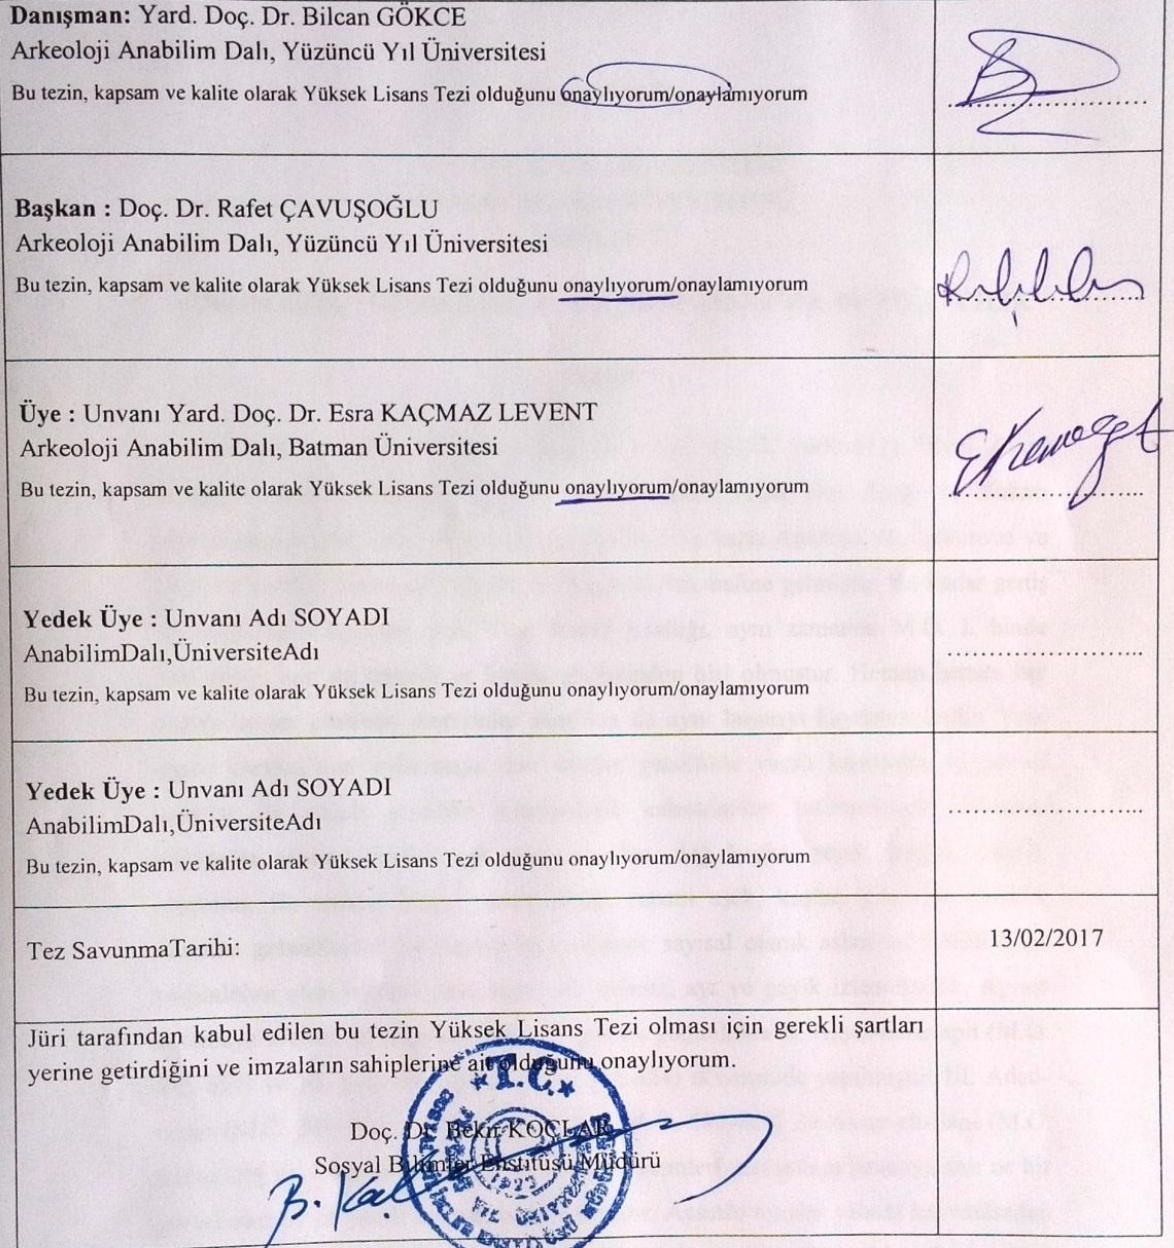 Danışman: Yard. Doç. Dr. Bilcan GÖKCE
Arkeoloji Anabilim Dalı, Yüzüncü Yıl Üniversitesi
Bu tezin, kapsam ve kalite olarak Yüksek Lisans Tezi olduğunu onaylıyorum/onaylamıyorum
Başkan : Doç. Dr. Rafet ÇAVUŞOĞLU
Arkeoloji Anabilim Dalı, Yüzüncü Yıl Üniversitesi
Bu tezin, kapsam ve kalite olarak Yüksek Lisans Tezi olduğunu onaylıyorum/onaylamıyorum
Üye : Unvanı Yard. Doç. Dr. Esra KAÇMAZ LEVENT
Arkeoloji Anabilim Dalı, Batman Üniversitesi
Bu tezin, kapsam ve kalite olarak Yüksek Lisans Tezi olduğunu onaylıyorum/onaylamıyorum
Yedek Üye : Unvanı Adı SOYADI
AnabilimDalı,ÜniversiteAdı
Bu tezin, kapsam ve kalite olarak Yüksek Lisans Tezi olduğunu onaylıyorum/onaylamıyorum
Yedek Üye : Unvanı Adı SOYADI
AnabilimDalı,ÜniversiteAdı
Bu tezin, kapsam ve kalite olarak Yüksek Lisans Tezi olduğunu onaylıyorum/onaylamıyorum
Tez SavunmaTarihi: 13/02/2017
Jüri tarafından kabul edilen bu tezin Yüksek Lisans Tezi olması için gerekli şartları
yerine getirdiğini ve imzaların sahiplerine ait olduğunu onaylıyorum.
T.C.
Doç. Dr. Bekir KOÇLAR
Sosyal Bilimler Enstitüsü Müdürü